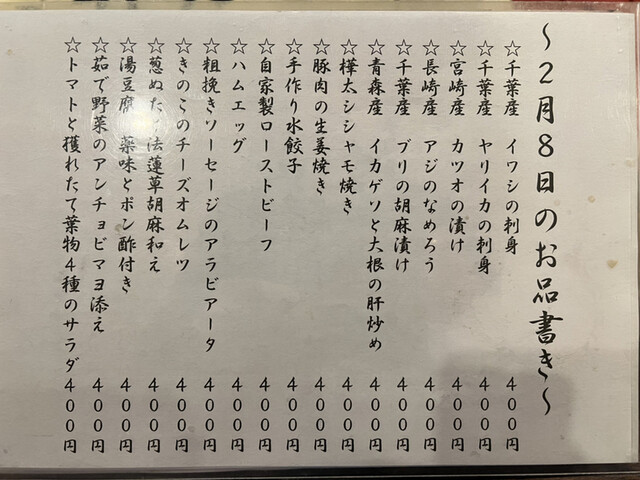 ～2月8日のお品書き～
☆千葉産　イワシの刺身　400円
☆千葉産　ヤリイカの刺身　400円
☆宮崎産　カツオの漬け　400円
☆長崎産　アジのなめろう　400円
☆千葉産　ブリの胡麻漬け　400円
☆青森産　イカゲソと大根の肝炒め　400円
☆樺太シシャモ焼き　400円
☆豚肉の生姜焼き　400円
☆手作り水餃子　400円
☆自家製ローストビーフ　400円
☆ハムエッグ　400円
☆粗挽きソーセージのアラビアータ　400円
☆きのこのチーズオムレツ　400円
☆葱ぬた／法蓮草胡麻和え　400円
☆湯豆腐　薬味とポン酢付き　400円
☆茹で野菜のアンチョビマヨ添え　400円
☆トマトと獲れたて葉物4種のサラダ　400円